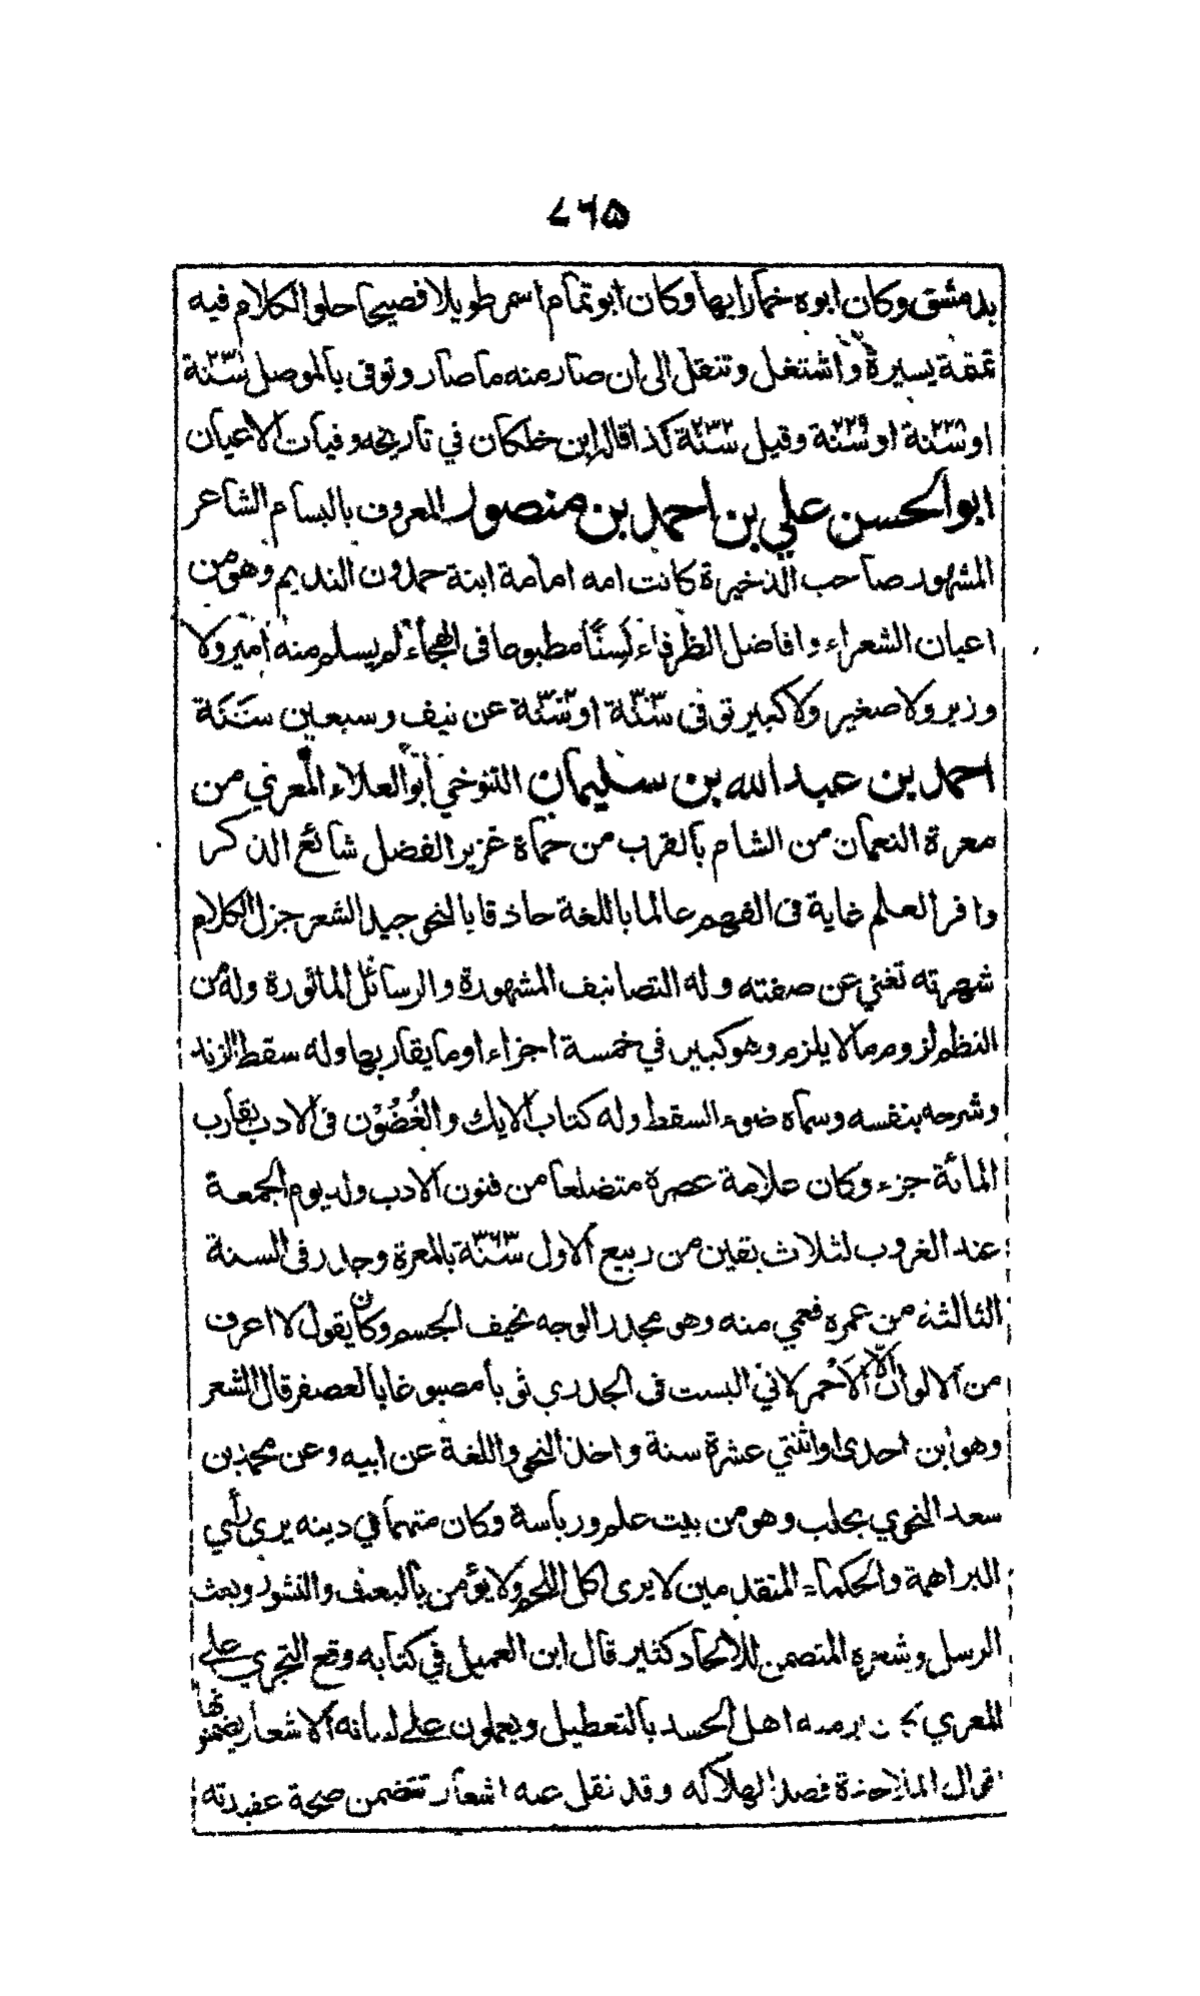 ٧٦٥
بدمشق وكان ابوه خمارا بها وكان ابو تمام اسمر طويلا فصيحا حلو الكلام فيه
تمتمة يسيرة واشتغل وتنقل الى ان صار منه ما صار وتوفى بالموصل سنة
او سنة ٢٢٨ او سنة ٢٢٩ وقيل سنة ٢٣٢ كذا قال ابن خلكان في تاريخه وفيات الاعيان
ابو الحسن علي بن احمد بن منصور المعروف بالبسام الشاعر
المشهور صاحب الذخيرة كانت امه امامة ابنة حمدون النديم وهو من
اعيان الشعراء وافاضل الظرفاء لَسِنًا مطبوعا فى الهجاء لم يسلم منه امير ولا
وزير ولا صغير ولا كبير توفى سنة او سنة عن نيف وسبعين سنة
احمد بن عبد الله بن سليمان التنوخي أبو العلاء المعري من
معرة النعمان من الشام بالقرب من حماة غزير الفضل شائع الذكر
وافر العلم غاية فى الفهم عالما باللغة حاذقا بالنحو جيد الشعر جزل الكلام
شهرته تغني عن صفته وله التصانيف المشهورة والرسائل الماثورة وله من
النظم لزوم ما لا يلزم وهو كبير في خمسة اجزاء او ما يقاربها وله سقط الزند
وشرحه بنفسه وسماه ضوء السقط وله كتاب الايك والغُصُوْن فى الادب يقارب
المائة جزء وكان علامة عصره متضلعا من فنون الادب ولد يوم الجمعة
عند الغروب لثلاث بقين من ربيع الاول سنة ٣٦٣ بالمعرة وجدر فى السنة
الثالثة من عمره فعمي منه وهو مجدر الوجه نحيف الجسم وكان يقول لا اعرف
من الالوان الّا الاَحْمر لاني البست فى الجدري ثوبا مصبوغا بالعصفر قال الشعر
وهو ابن احدى او اثنتي عشرة سنة واخذ النحو واللغة عن ابيه وعن محمد بن
سعد النحوي بحلب وهو من بيت علم ورياسة وكان متهما في دينه يرى رأي
البراهمة والحكماء المتقدمين لا يرى اكل اللحم ولا يؤمن بالبعث والنشور وبعث
الرسل وشعره المتضمن للالحاد كثير قال ابن العميل في كتابه وقع التجري على
المعري يرميه اهل الحسد بالتعطيل ويعملون على لسانه الاشعار يضمنونها
اقوال الملاحدة قصدا لهلاكه وقد نقل عنه اشعار تتضمن صحة عقيدته